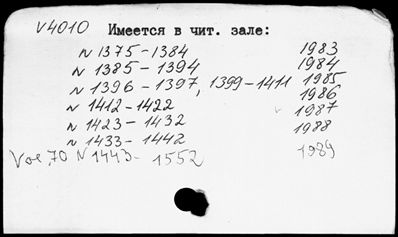 V4010 Имеется в чит. зале:
N 1375-1384 1983
N 1385-1394 1984
N 1396-1397, 1399-1411 1985
N 1412-1422 1986
N 1423-1432 1987
N 1433-1442 1988
Vol. 70 N 1443- 1552 1989